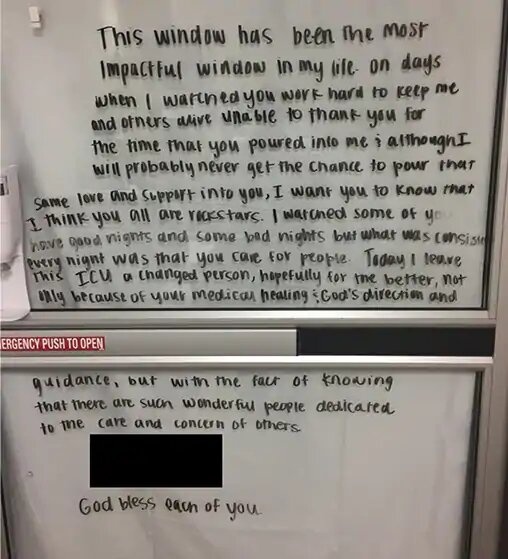 This window has been the most
impactful window in my life. on days
when I watched you work hard to keep me
and others alive unable to thank you for
the time that you poured into me & although I
will probably never get the chance to pour that
same love and support into you, I want you to know that
I think you all are rockstars. I watched some of you
have good nights and some bad nights but what was
every night was that you care for people. Today I leave
This ICU a changed person, hopefully for the better, not
only because of your medical healing & God's direction and
ERGENCY PUSH TO OPEN
guidance, but with the fact of knowing
that there are such wonderful people dedicated
to the care and concern of others.
God bless each of you.